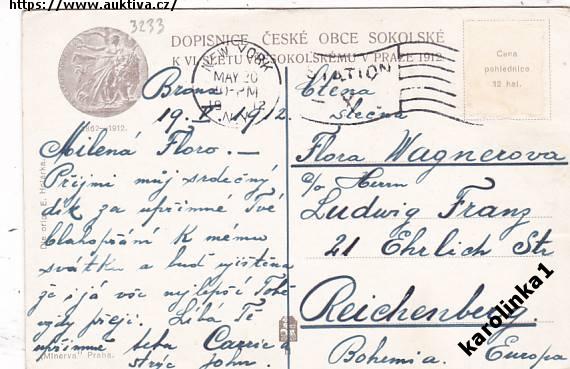 https://www.auktiva.cz/
3233
DOPISNICE ČESKÉ OBCE SOKOLSKÉ
K VI. SLETU VŠESOKOLSKÉMU V PRAZE 1912.
NEW YORK
MAY 20
-PM
STATION
Cena
pohlednice
12 hal.
1862–1912.
Bronx
19. V. 1912
Milená Floro. —
Přijmi můj srdečný
dík za upřímné Tvé
blahopřání k mému
svátku a buď ujištěna
že i já vše nejlepší Tobě
vždy přeji. Líbá Tě
upřímně teta Carrie a
strýc John.
Ctěná
slečna
Flora Wagnerova
c/o Herrn
Ludwig Franz
21 Ehrlich Str
Reichenberg.
Bohemia. Europa
"Minerva" Praha.
karolinka1